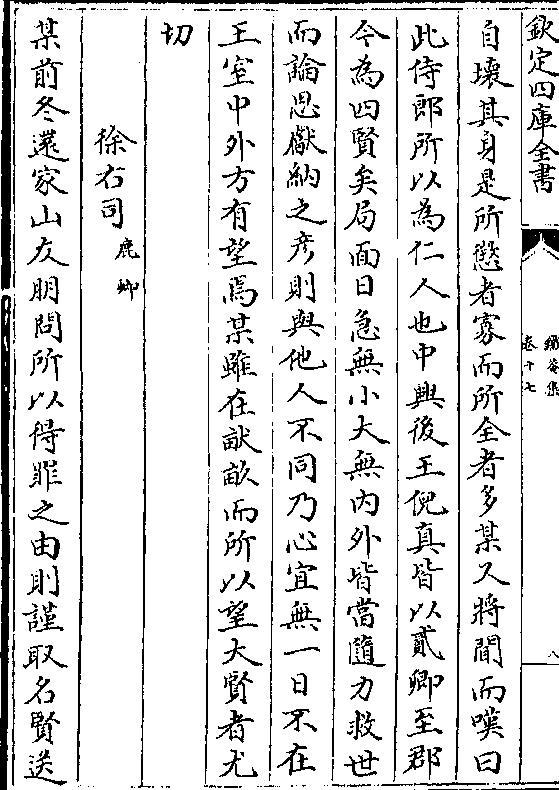 欽定四庫全書
卷十七
八
自壞其身是所懲者寡而所全者多某又將聞而嘆曰
此侍郎所以為仁人也中興後王倪真皆以貳卿至郡
今為四賢矣局面日急無小大無內外皆當隨力救世
而論思獻納之彦則與他人不同乃心宜無一日不在
王室中外方有望焉某雖在畎畝而所以望大賢者尤
切
徐右司鹿卿
某前冬還家山友朋問所以得罪之由則謹取名賢送